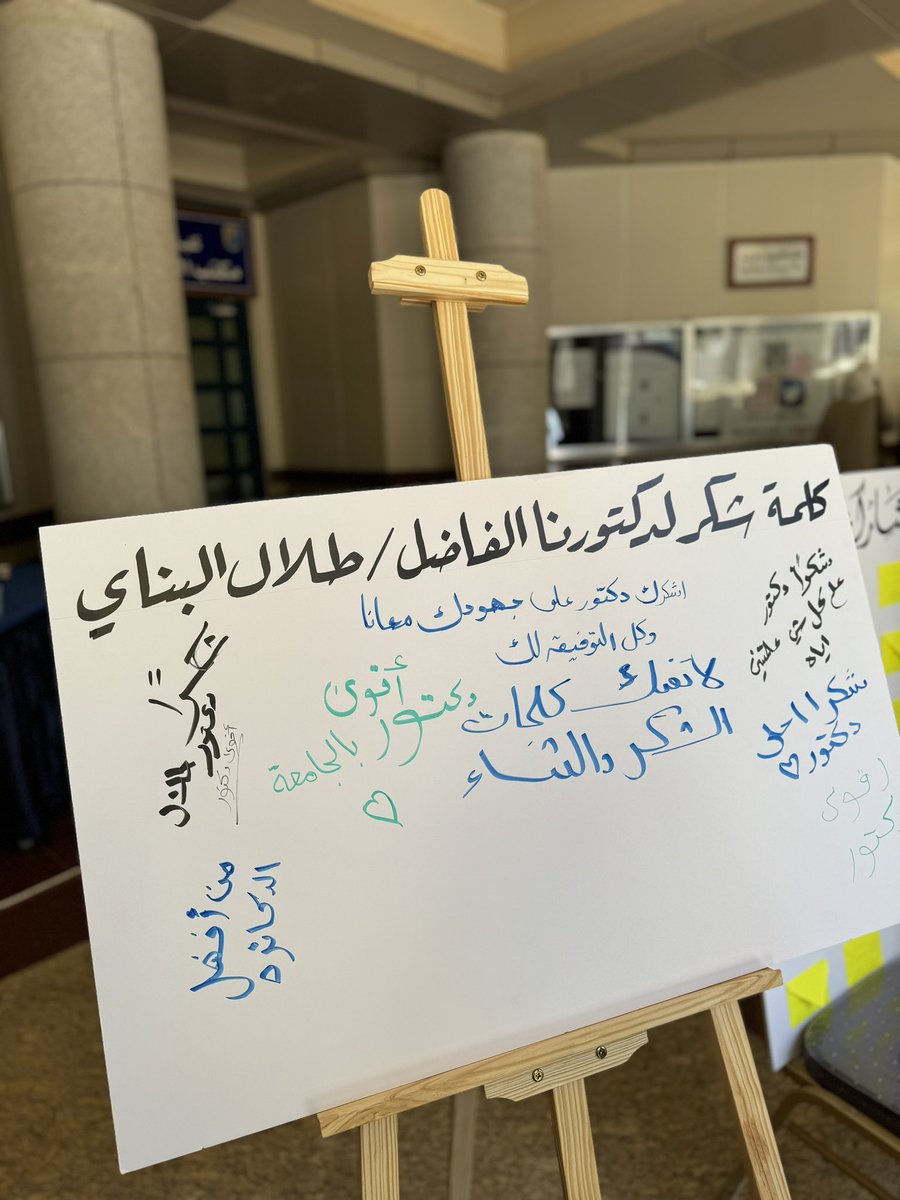 كلمة شكر لدكتورنا الفاضل / طلال البناي
اشكرك دكتور على جهودك معانا
وكل التوفيق لك
لا تفيك كلمات
الشكر والثناء
شكراً دكتور
على كل شي علمتني
اياه
شكرا احلى
دكتور
اقوى
دكتور
أقوى
دكتور
بالجامعة
شكراً
دكتور طلال
أقوى دكتور
من أفضل
الدكاترة
مكتب